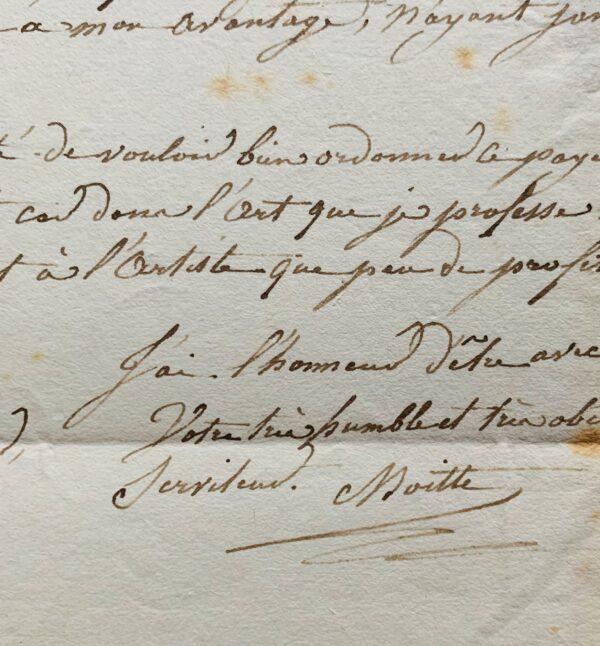 à mon avantage, N'ayant jam
té de vouloir bien ordonner ce paye
t car dans l'Art que je professe
t à l'Artiste que peu de profit
J'ai l'honneur d'être avec
Votre très humble et très obé
Serviteur. Moitte